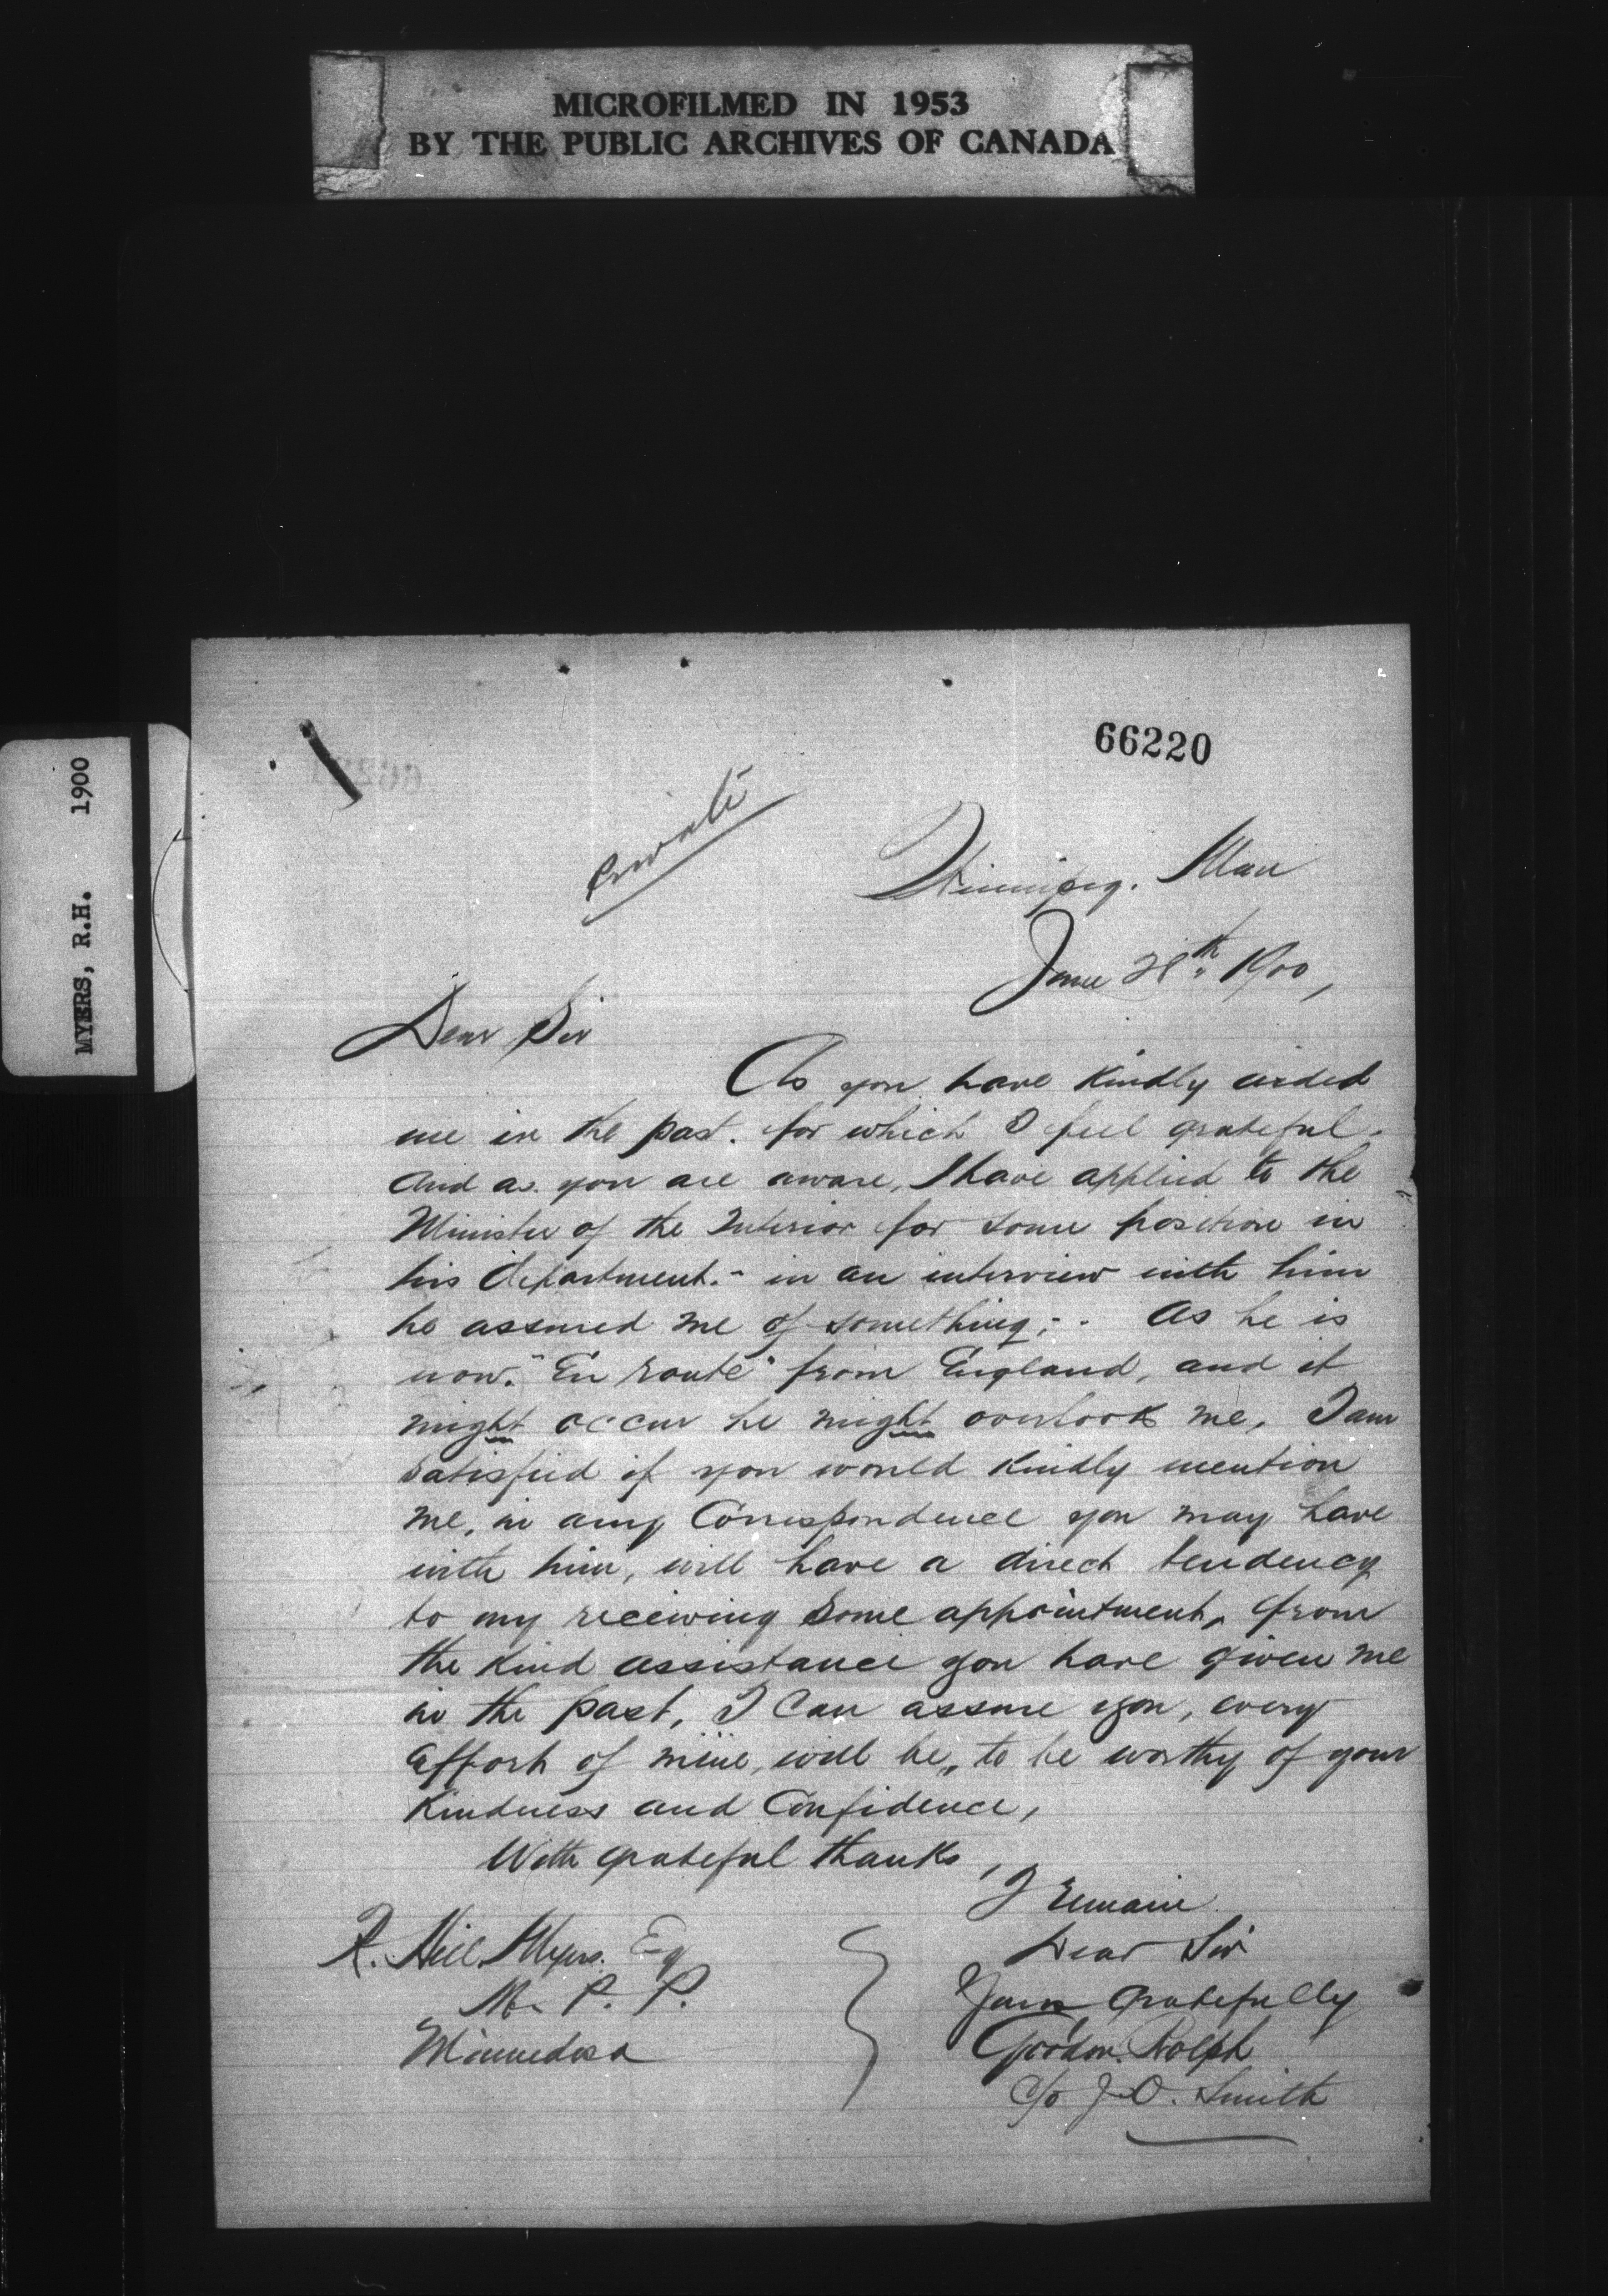 MICROFILMED IN 1953
BY THE PUBLIC ARCHIVES OF CANADA
MYERS, R.H. 1900
66220
Private
Winnipeg. Man
June 28th 1900,
Dear Sir
As you have kindly aided
me in the past. for which I feel grateful.
And as you are aware, I have applied to the
Minister of the Interior for some position in
his Department.- in an interview with him
he assured me of something;. As he is
now. "En route" from England, and it
might occur he might overlook me, I am
satisfied if you would kindly mention
me, in any Correspondence you may have
with him, will have a direct tendency
to my receiving some appointment, from
the kind assistance you have given me
in the past, I can assure you, every
effort of mine, will be, to be worthy of your
kindness and Confidence,
With grateful thanks,
I remain
Dear Sir
Yours gratefully
Gordon. Rolph
c/o J. O. Smith
R. Hill Myers. Esq
M. P. P.
Minnedosa